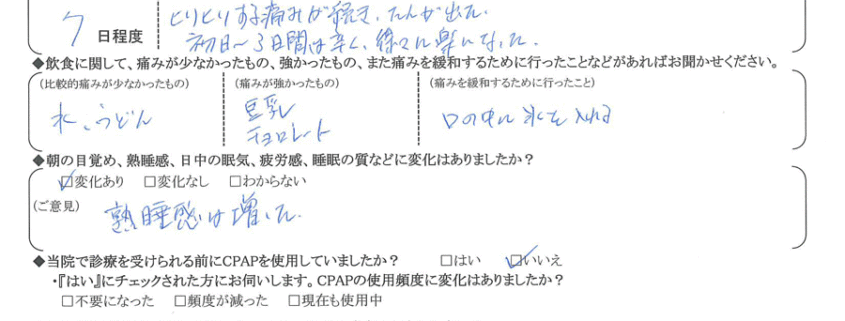 ヒリヒリする痛みが続き、たんが出た。
7 日程度
初日～3日間は辛く、徐々に楽になった。
◆飲食に関して、痛みが少なかったもの、強かったもの、また痛みを緩和するために行ったことなどがあればお聞かせください。
(比較的痛みが少なかったもの) (痛みが強かったもの) (痛みを緩和するために行ったこと)
水、うどん 豆乳 口の中に氷を入れる
チョコレート
◆朝の目覚め、熟睡感、日中の眠気、疲労感、睡眠の質などに変化はありましたか？
☑変化あり □変化なし □わからない
(ご意見) 熟睡感は増した。
◆当院で診療を受けられる前にCPAPを使用していましたか？ □はい ☑いいえ
・『はい』にチェックされた方にお伺いします。CPAPの使用頻度に変化はありましたか？
□不要になった □頻度が減った □現在も使用中